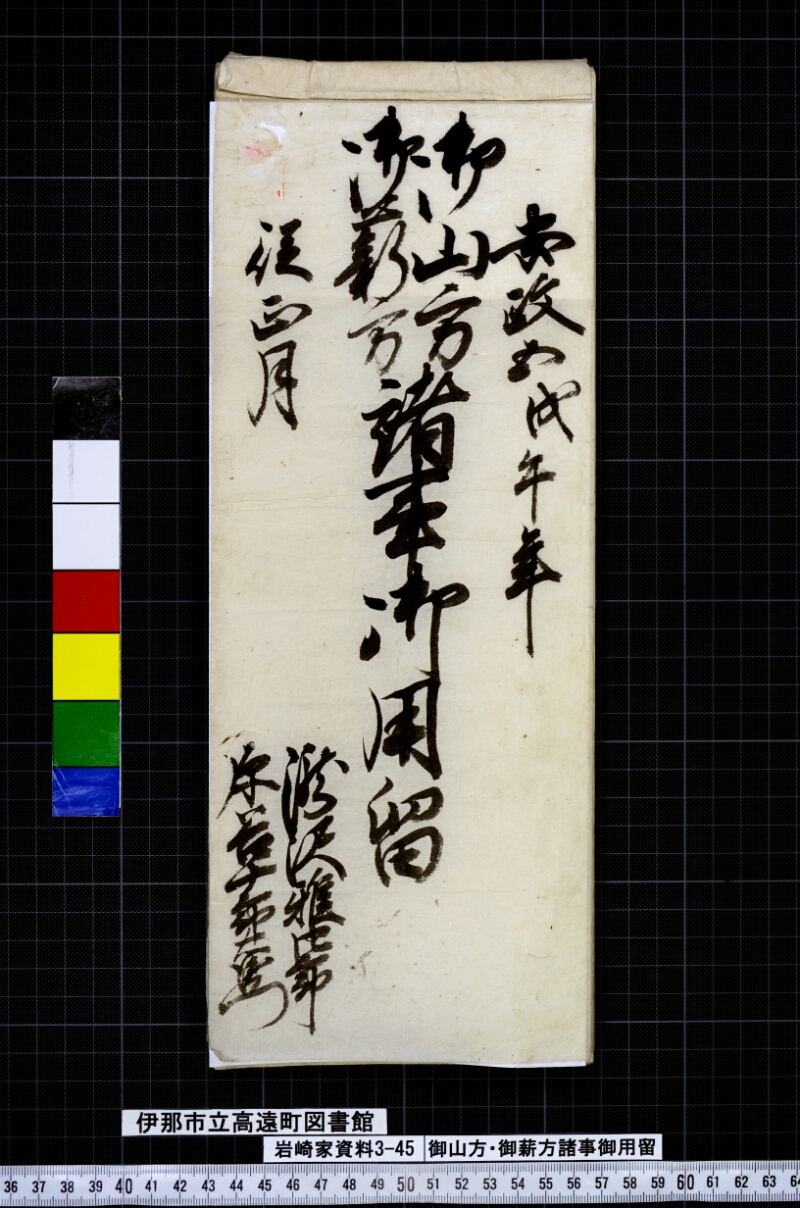 安政五戊午年
御山方
御薪方
諸事御用留
従正月
瀧沢雅
原
伊那市立高遠町図書館
岩崎家資料3-45
御山方・御薪方諸事御用留
36 37 38 39 40 41 42 43 44 45 46 47 48 49 50 51 52 53 54 55 56 57 58 59 60 61 62 63 64